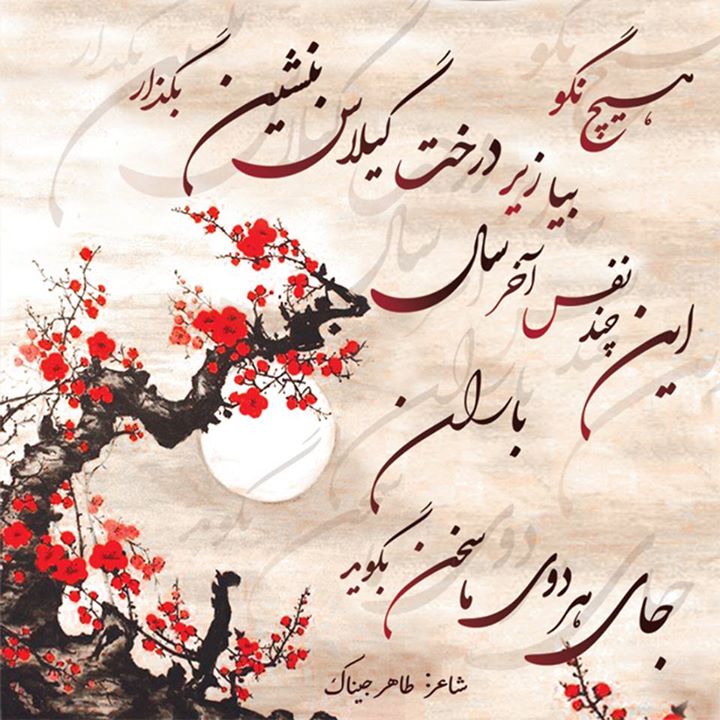 هیچ نگو
بیا زیر درخت گیلاس بنشین بگذار
این چند نفس آخر سال
باران
جای هر دوی ما سخن بگوید
شاعر: طاهر جیناک